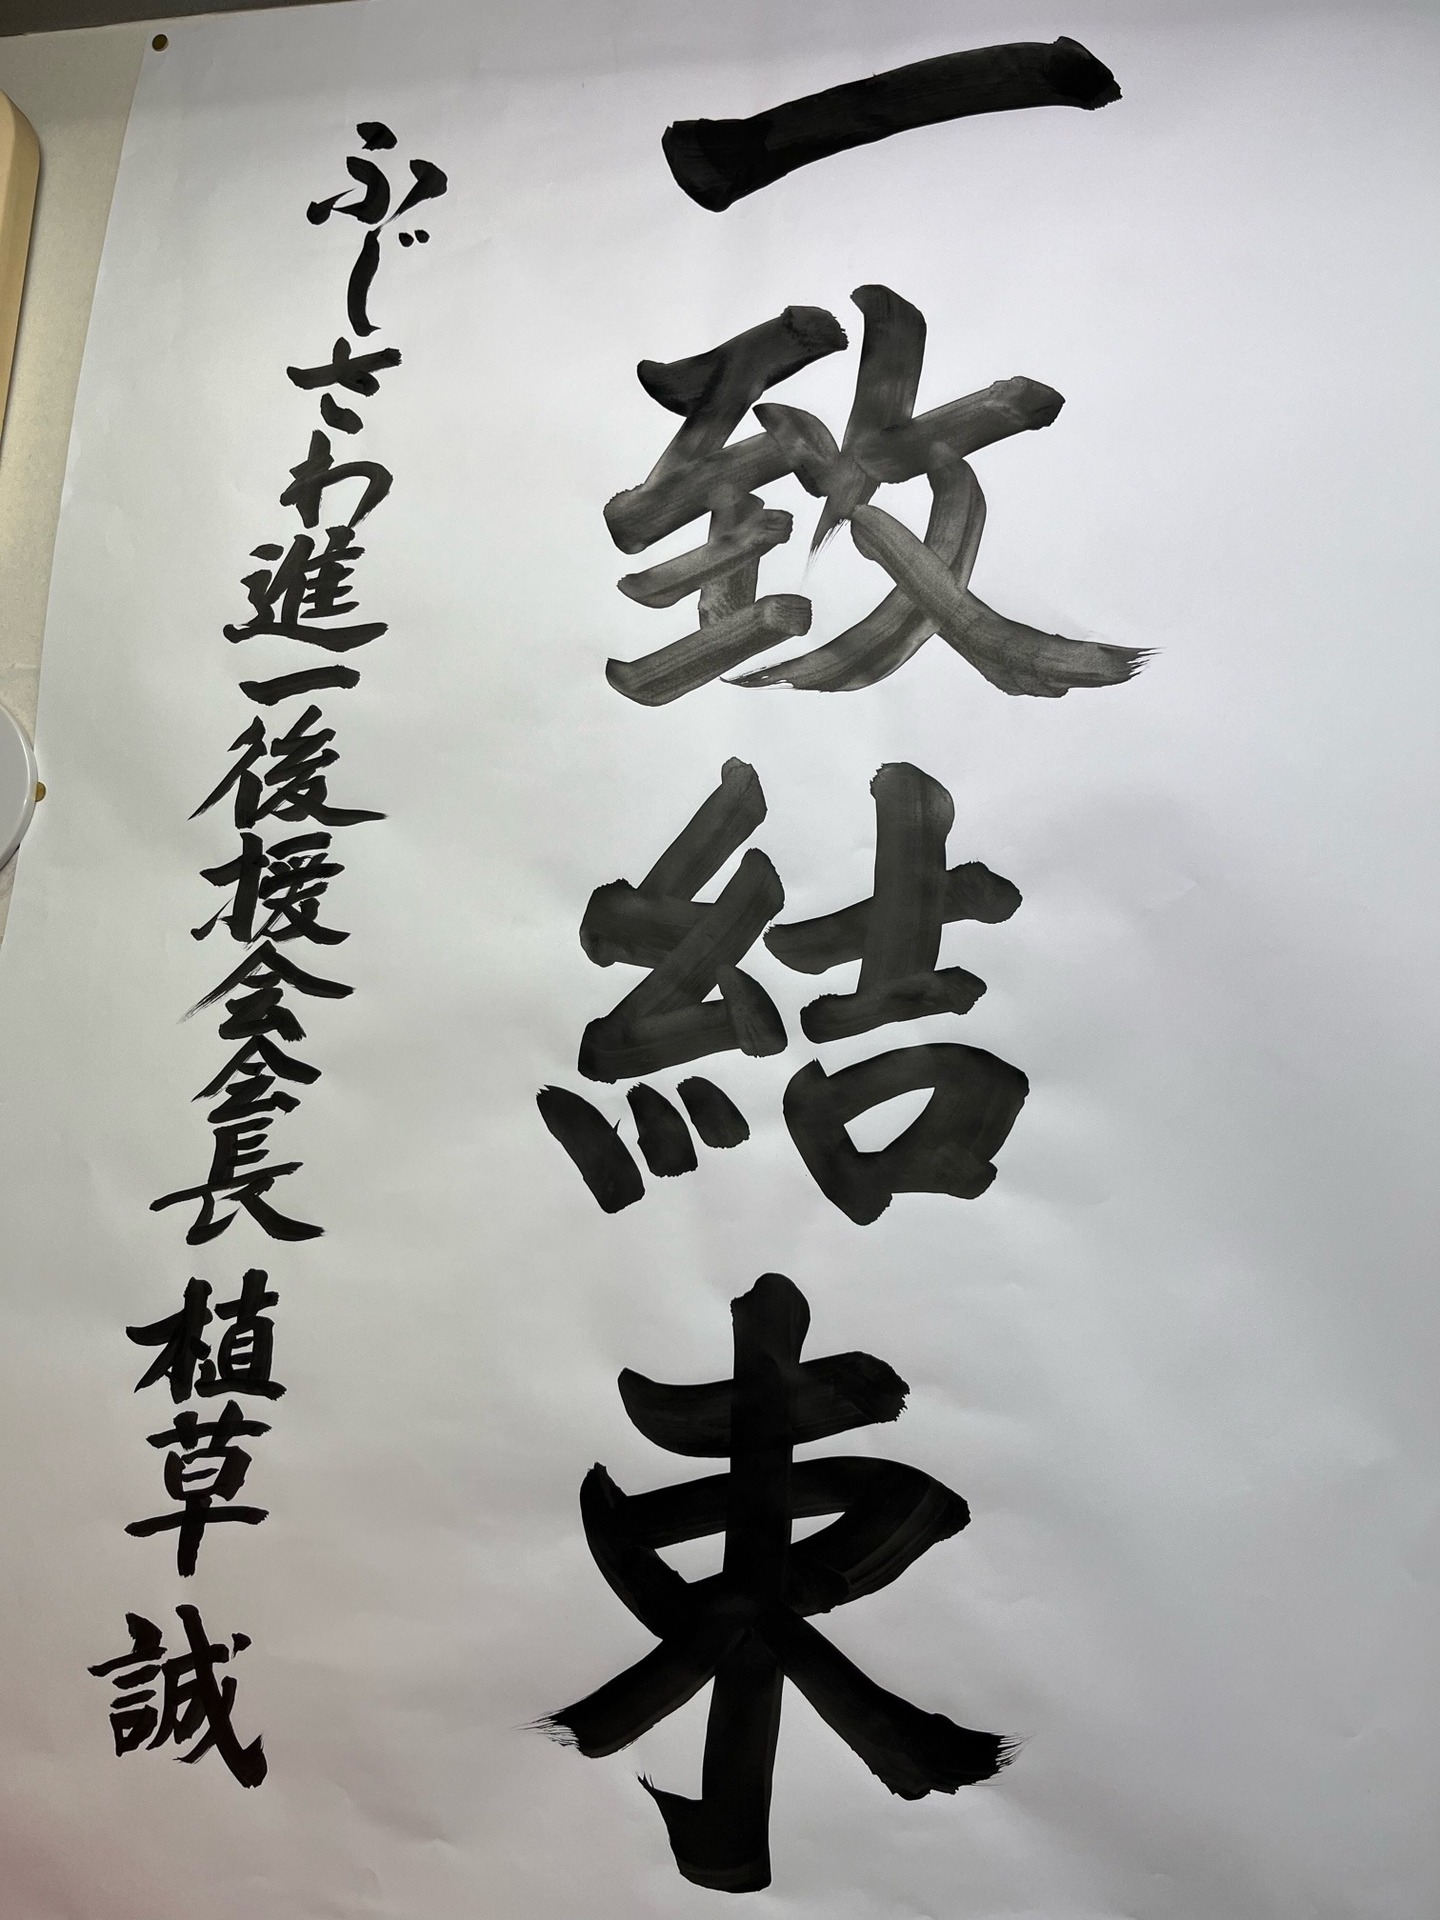 一致結束
ふじさわ進一後援会会長 植草 誠